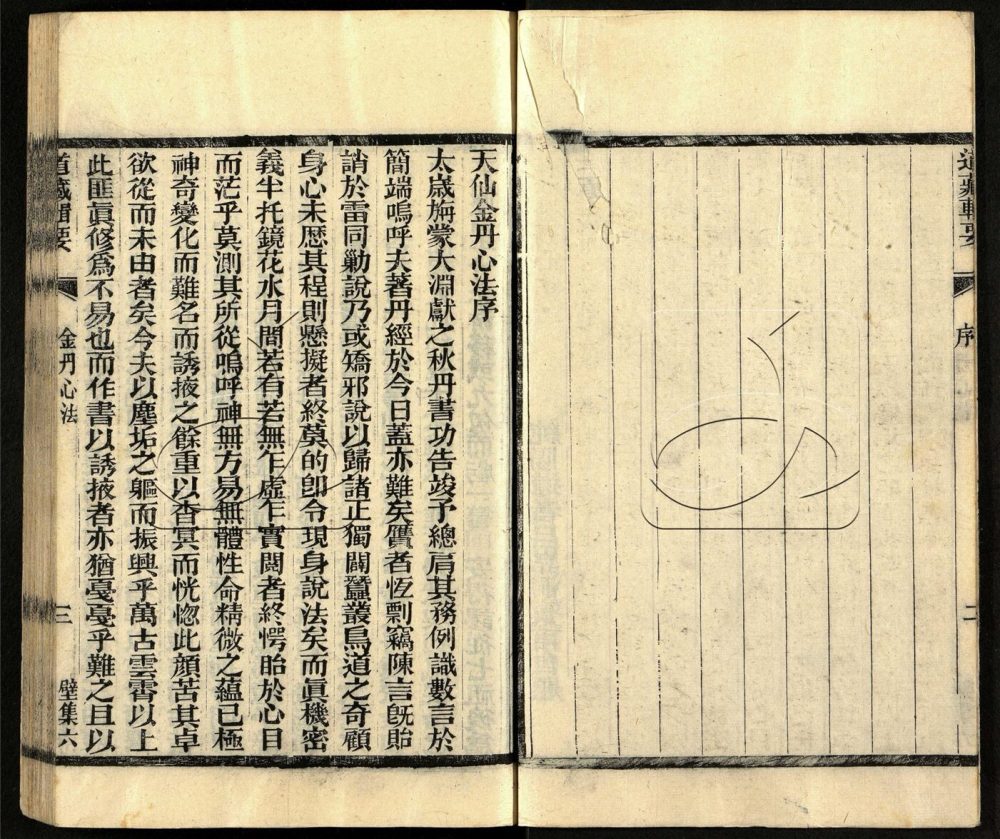 道藏輯要
序
二
天仙金丹心法序
太歲旃蒙大淵獻之秋丹書功告竣予總肩其務例識數言於
簡端嗚呼夫著丹經於今日蓋亦難矣贋者恆剽竊陳言旣貽
誚於雷同勦說乃或矯邪說以歸諸正獨闢蠶叢鳥道之奇顧
身心未歷其程則懸擬者終莫的卽令現身說法矣而眞機密
義半托鏡花水月間若有若無乍虛乍實閱者終愕眙於心目
而茫乎莫測其所從嗚呼神無方易無體性命精微之蘊已極
神奇變化而難名而誘掖之餘重以杳冥而恍惚此顔苦其卓
欲從而未由者矣今夫以塵垢之軀而振興乎萬古雲霄以上
此匪眞修爲不易也而作書以誘掖者亦猶戞戞乎難之且以
道藏輯要
金丹心法
三
壁集六